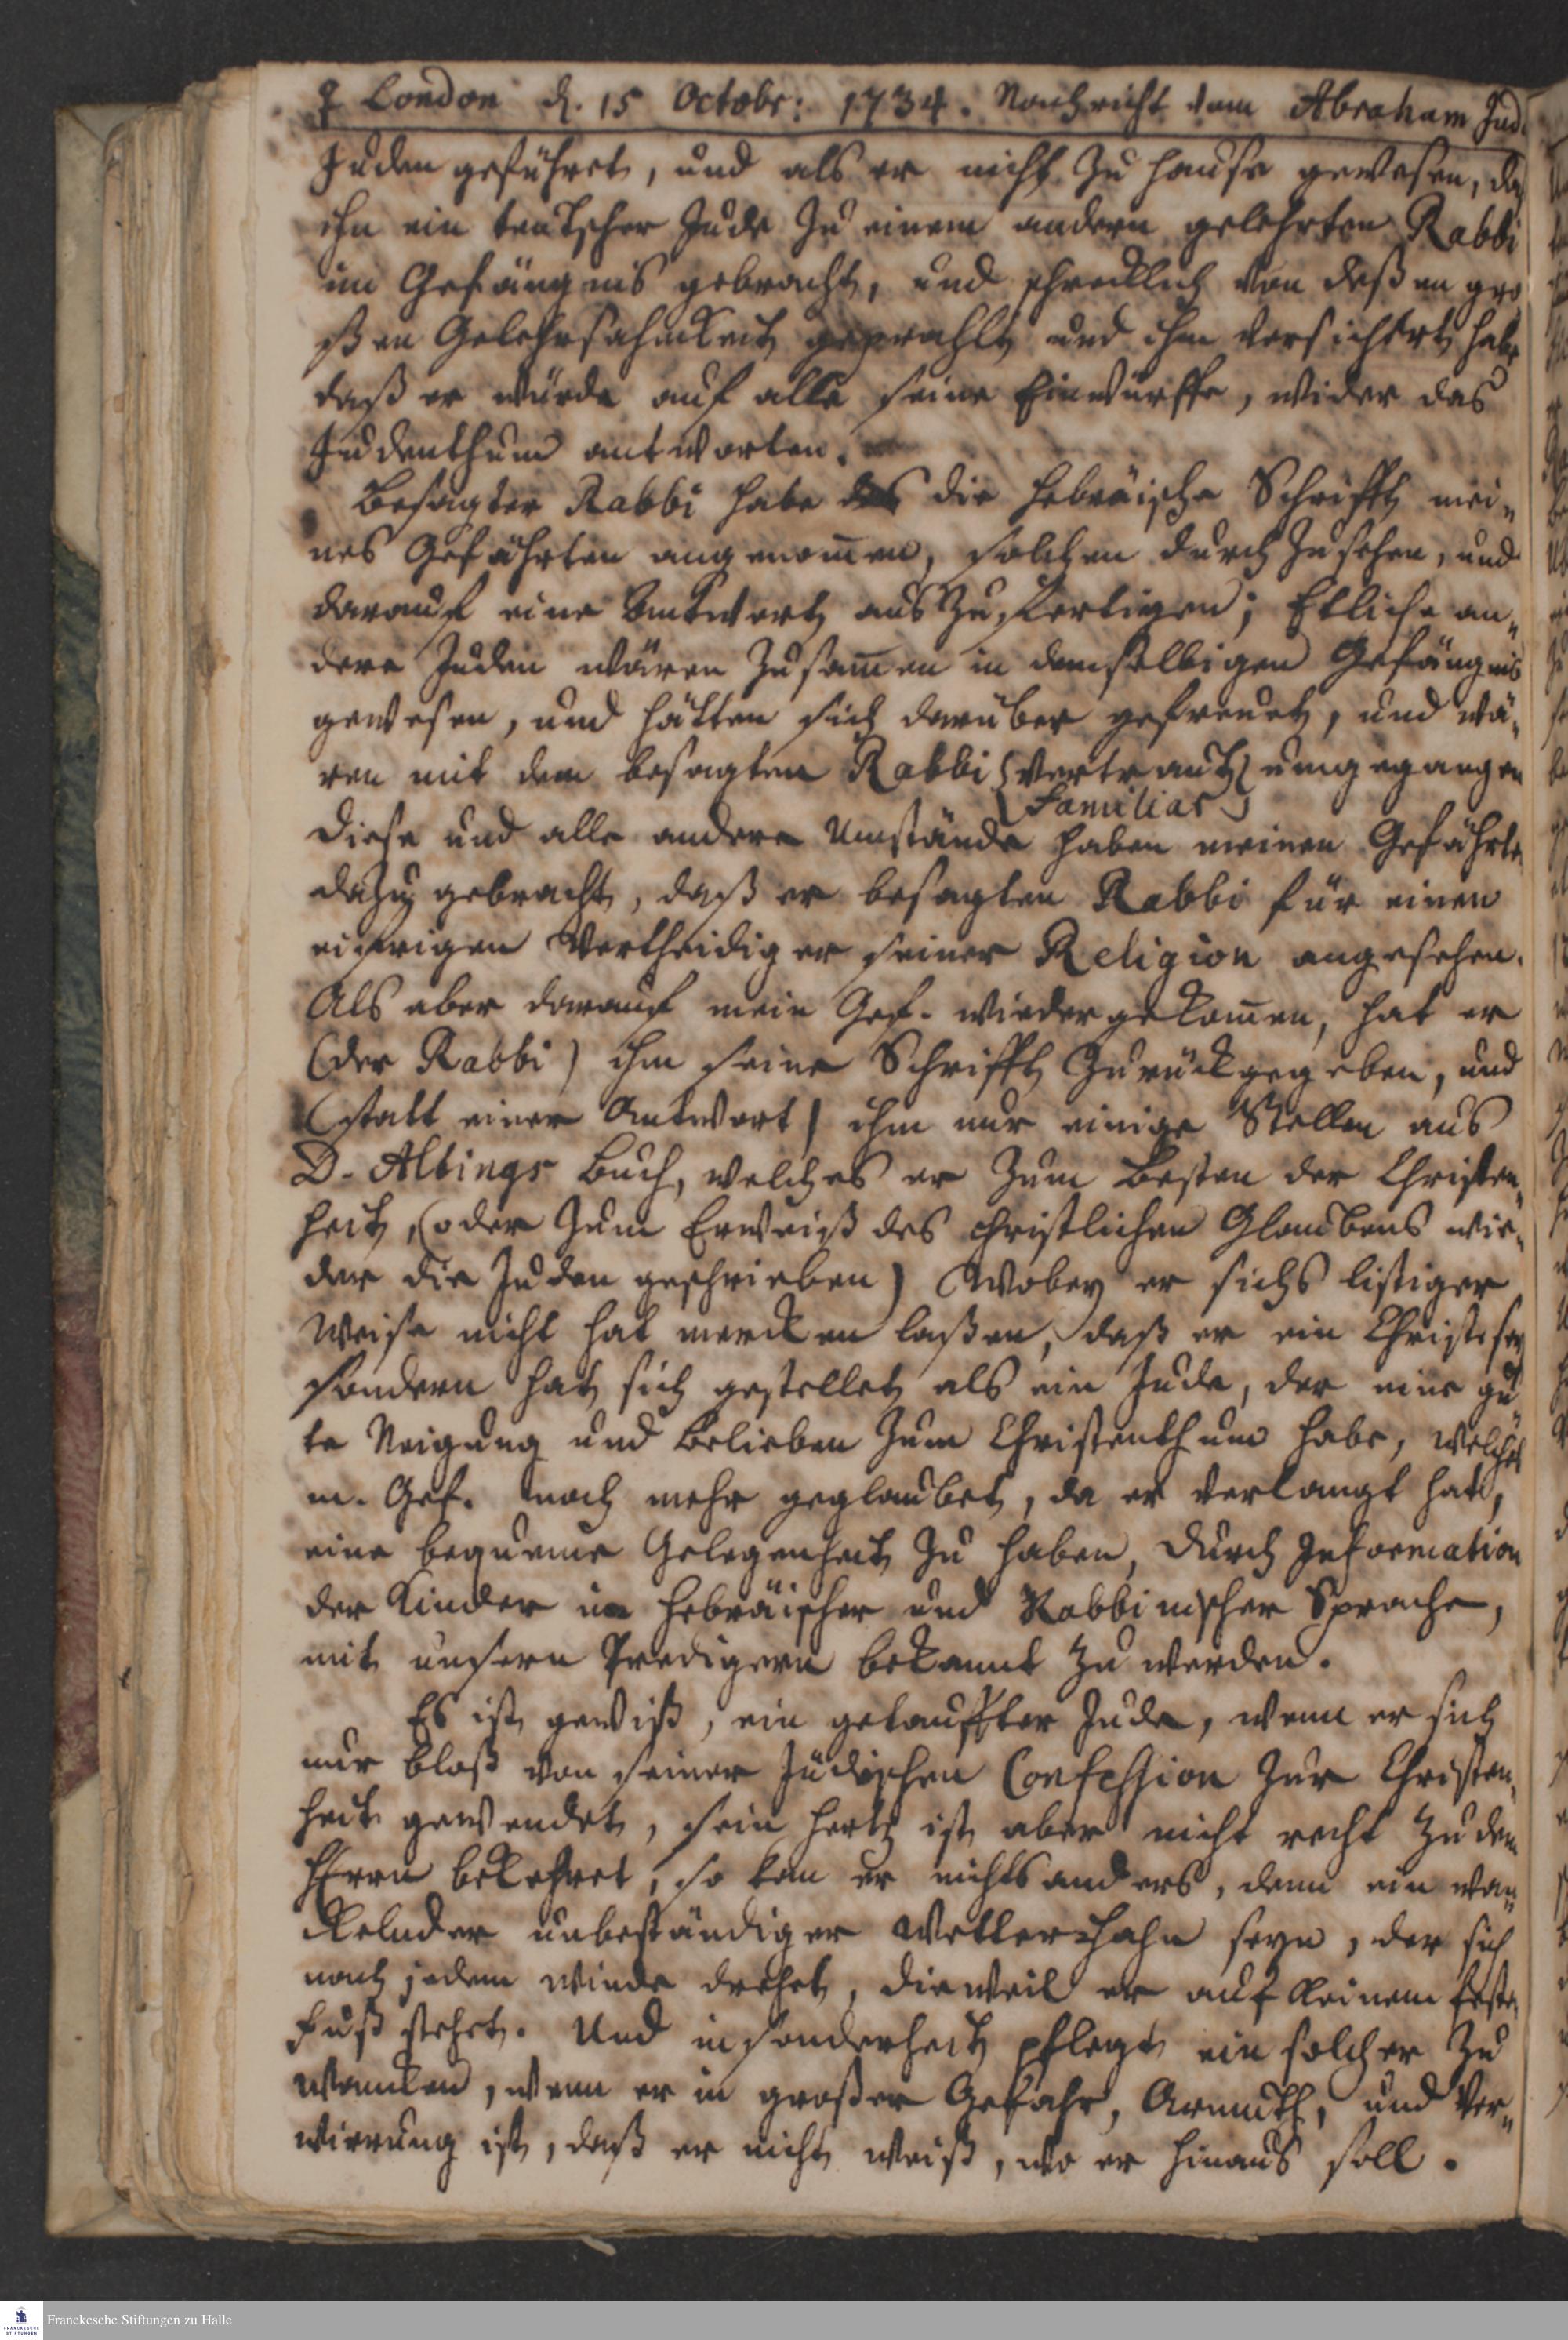 ♀ London d. 15 Octobr: 1734. Nachricht vom Abraham Jud.
Juden geführet, und als er nicht zu Hause gewesen, da
ihn ein teutscher Jude zu einem andern gelehrten Rabbi
im Gefängnis gebracht, und schrecklich von deßen gro
ßen Gelehrsahmkeit geprahlt und ihm versichert habe
daß er würde auf alle seine Einwürffe, wider das
Judenthum antworten.
Besagter Rabbi habe die Hebräische Schrifft mei„
nes Gefährten angenom̅en, solchen durch zusehen, und
darauf eine Antwort auszufertigen; Etliche an„
dere Juden wären zusam̅en in demselbigen Gefängnis
gewesen, und hätten sich darüber gefreuet, und wä„
ren mit dem besagten Rabbi (vertraut) umgegangen
(Familiar)
Diese und alle andere Umstände haben meinen Gefährte
dazu gebracht, daß er besagten Rabbi für einen
eifrigen Vertheidiger seiner Religion angesehen.
Als aber darauf mein Gef. wiedergekom̅en, hat er
(der Rabbi) ihm seine Schrifft zurückgegeben, und
(statt einer Antwort) ihm nur einige Stellen aus
D. Altings Buch, welches er zum Besten der Christen„
heit, (oder zum Erweiß des christlichen Glaubens wie„
der die Juden geschrieben) (wobey er sichs listiger
Weise nicht hat mercken laßen, daß er ein Christ sey
sondern hat sich gestellet als ein Jude, der eine gu„
te Neigung und Belieben zum Christenthum habe, welches
m. Gef. noch mehr geglaubet, da er verlangt hat,
eine bequeme Gelegenheit zu haben, durch Information
der Kinder in Hebräischer und Rabbinischer Sprache,
mit unsern Predigern bekannt zu werden.
Es ist gewiß, ein getauffter Jude, wenn er sich
nur bloß von seiner Jüdischen Confession zur Christen„
heit gewendet, sein Hertz ist aber nicht recht zu dem
HErrn bekehret, so kan er nichts anders, denn ein wan„
ckelnder unbeständiger Wetterhahn seyn, der sich
nach jedem Winde drehet, dieweil er auf keinem feste
Fuß stehet. Und insonderheit pflegt ein solcher zu
wancken, wenn er in großer Gefahr, Armuth, und Ver„
wirrung ist, daß er nicht weiß, wo er hinaus soll.
FRANCKESCHE STIFTUNGEN
Franckesche Stiftungen zu Halle